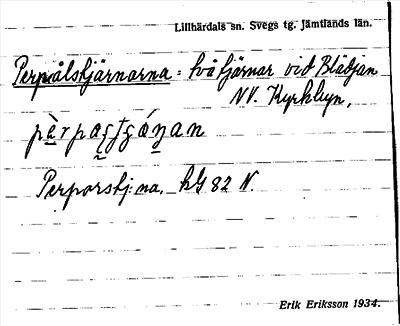 Lillhärdals sn. Svegs tg. Jämtlands län.
Perpålstjärnarna: två tjärnar vid Blädjan
NV. Kyrkbyn.
Perporstj:na, kG 82 N.
Erik Eriksson 1934.